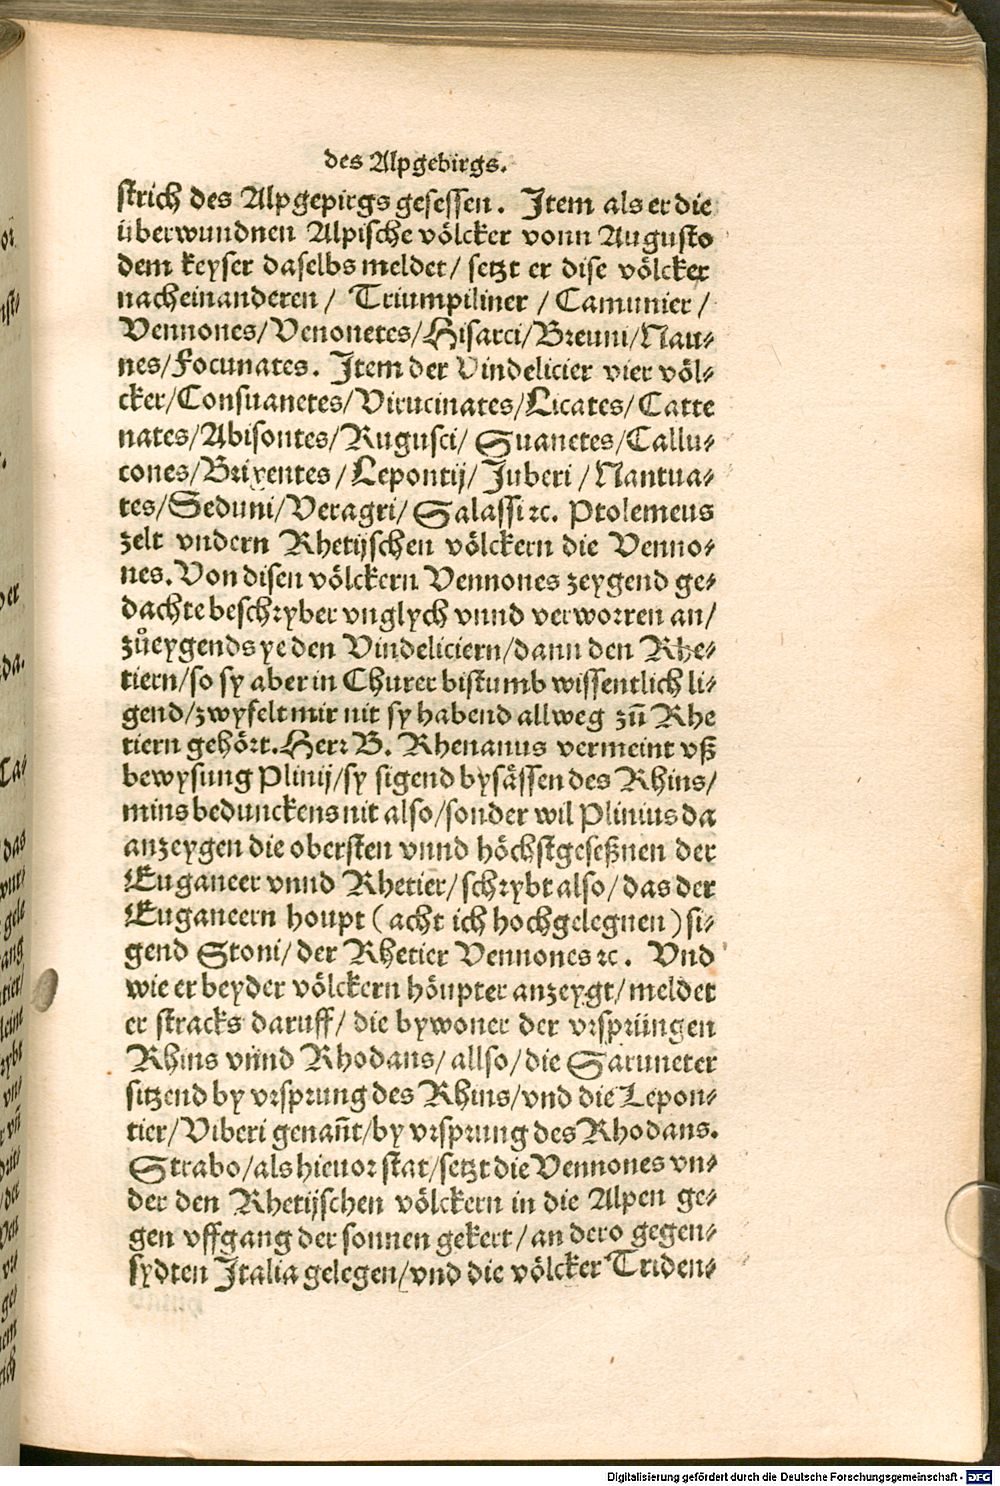 des Alpgebirgs.
strich des Alpgepirgs gesessen. Item als er die
überwundnen Alpische völcker vonn Augusto
dem keyser daselbs meldet/ setzt er dise völcker
nacheinanderen/ Triumpiliner/ Camunier/
Vennones/Venonetes/Hisarci/Breuni/Nau⸗
nes/Focunates. Item der Vindelicier vier völ⸗
cker/Consuanetes/Virucinates/Licates/Catte
nates/Abisontes/Rugusci/ Suanetes/Callu⸗
cones/Brixentes/Lepontij/Juberi/Nantua⸗
tes/Seduni/Veragri/ Salassi ꝛc. Ptolemeus
zelt vndern Rhetijschen völckern die Venno⸗
nes. Von disen völckern Vennones zeygend ge⸗
dachte beschryber vnglych vnnd verworren an/
zůeygends ye den Vindeliciern/dann den Rhe⸗
tiern/so sy aber in Churer bistumb wissentlich li⸗
gend/zwyfelt mir nit sy habend allweg zů Rhe
tiern gehört. Herr B. Rhenanus vermeint vß
bewysung Plinij/sy sigend bysässen des Rhins/
mins bedunckens nit also/sonder wil Plinius da
anzeygen die obersten vnnd höchstgeseßnen der
Euganeer vnnd Rhetier/schrybt also/das der
Euganeern houpt (acht ich hochgelegnen) si⸗
gend Stoni/der Rhetier Vennones ꝛc. Vnd
wie er beyder völckern höupter anzeygt/meldet
er stracks daruff/ die bywoner der vrsprüngen
Rhins vnnd Rhodans/ allso/die Saruneter
sitzend by vrsprung des Rhins/vnd die Lepon⸗
tier/Viberi genañt/by vrsprung des Rhodans.
Strabo/als hieuor stat/setzt die Vennones vn⸗
der den Rhetijschen völckern in die Alpen ge⸗
gen vffgang der sonnen gekert/an dero gegen⸗
sydten Italia gelegen/vnd die völcker Triden⸗
Digitalisierung gefördert durch die Deutsche Forschungsgemeinschaft - DFG